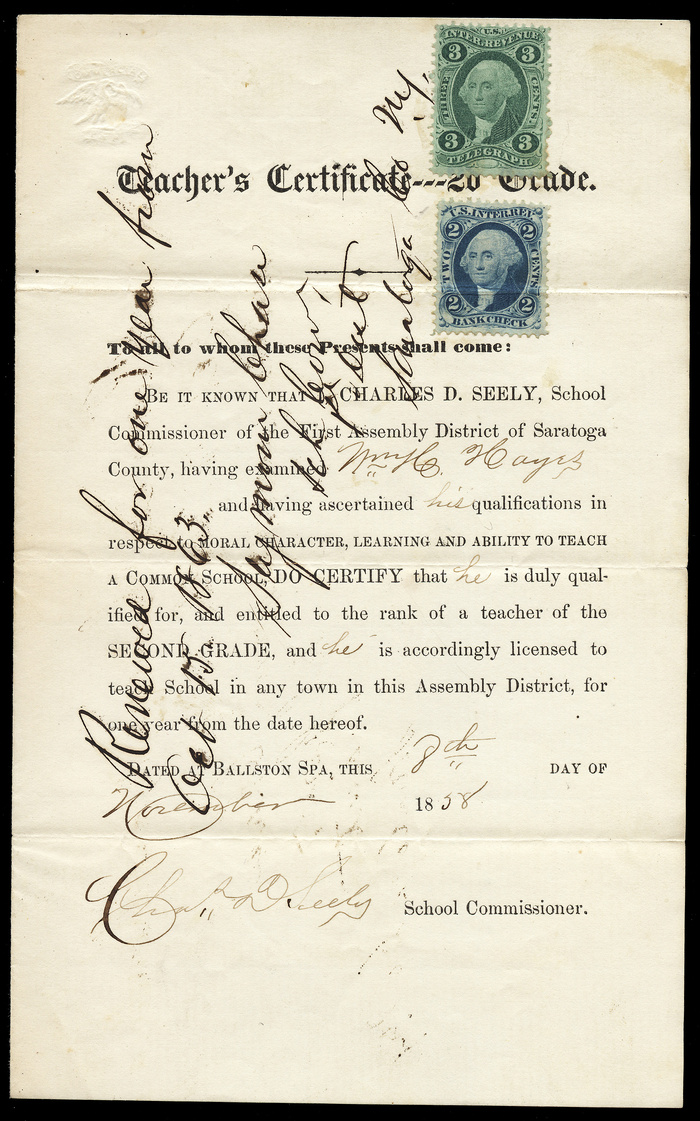 U.S.
INTER. REVENUE
3 3
THREE CENTS
3 3
TELEGRAPH
Teacher's Certificate---2d Grade.
U.S. INTER. REV.
2 2
TWO CENTS
2 2
BANK CHECK
To all to whom these Presents shall come:
BE IT KNOWN THAT I, CHARLES D. SEELY, School
Commissioner of the First Assembly District of Saratoga
County, having examined Wm H. Hayes
and having ascertained his qualifications in
respect to MORAL CHARACTER, LEARNING AND ABILITY TO TEACH
A COMMON SCHOOL, DO CERTIFY that he is duly qual-
ified for, and entitled to the rank of a teacher of the
SECOND GRADE, and he is accordingly licensed to
teach School in any town in this Assembly District, for
one year from the date hereof.
DATED AT BALLSTON SPA, THIS 8th DAY OF
November 1858
Chas. D Seely School Commissioner.
Renewed for one year from
Oct 15 1863
Seymour Chase
School Com.
1st Dist
Saratoga Co NY.